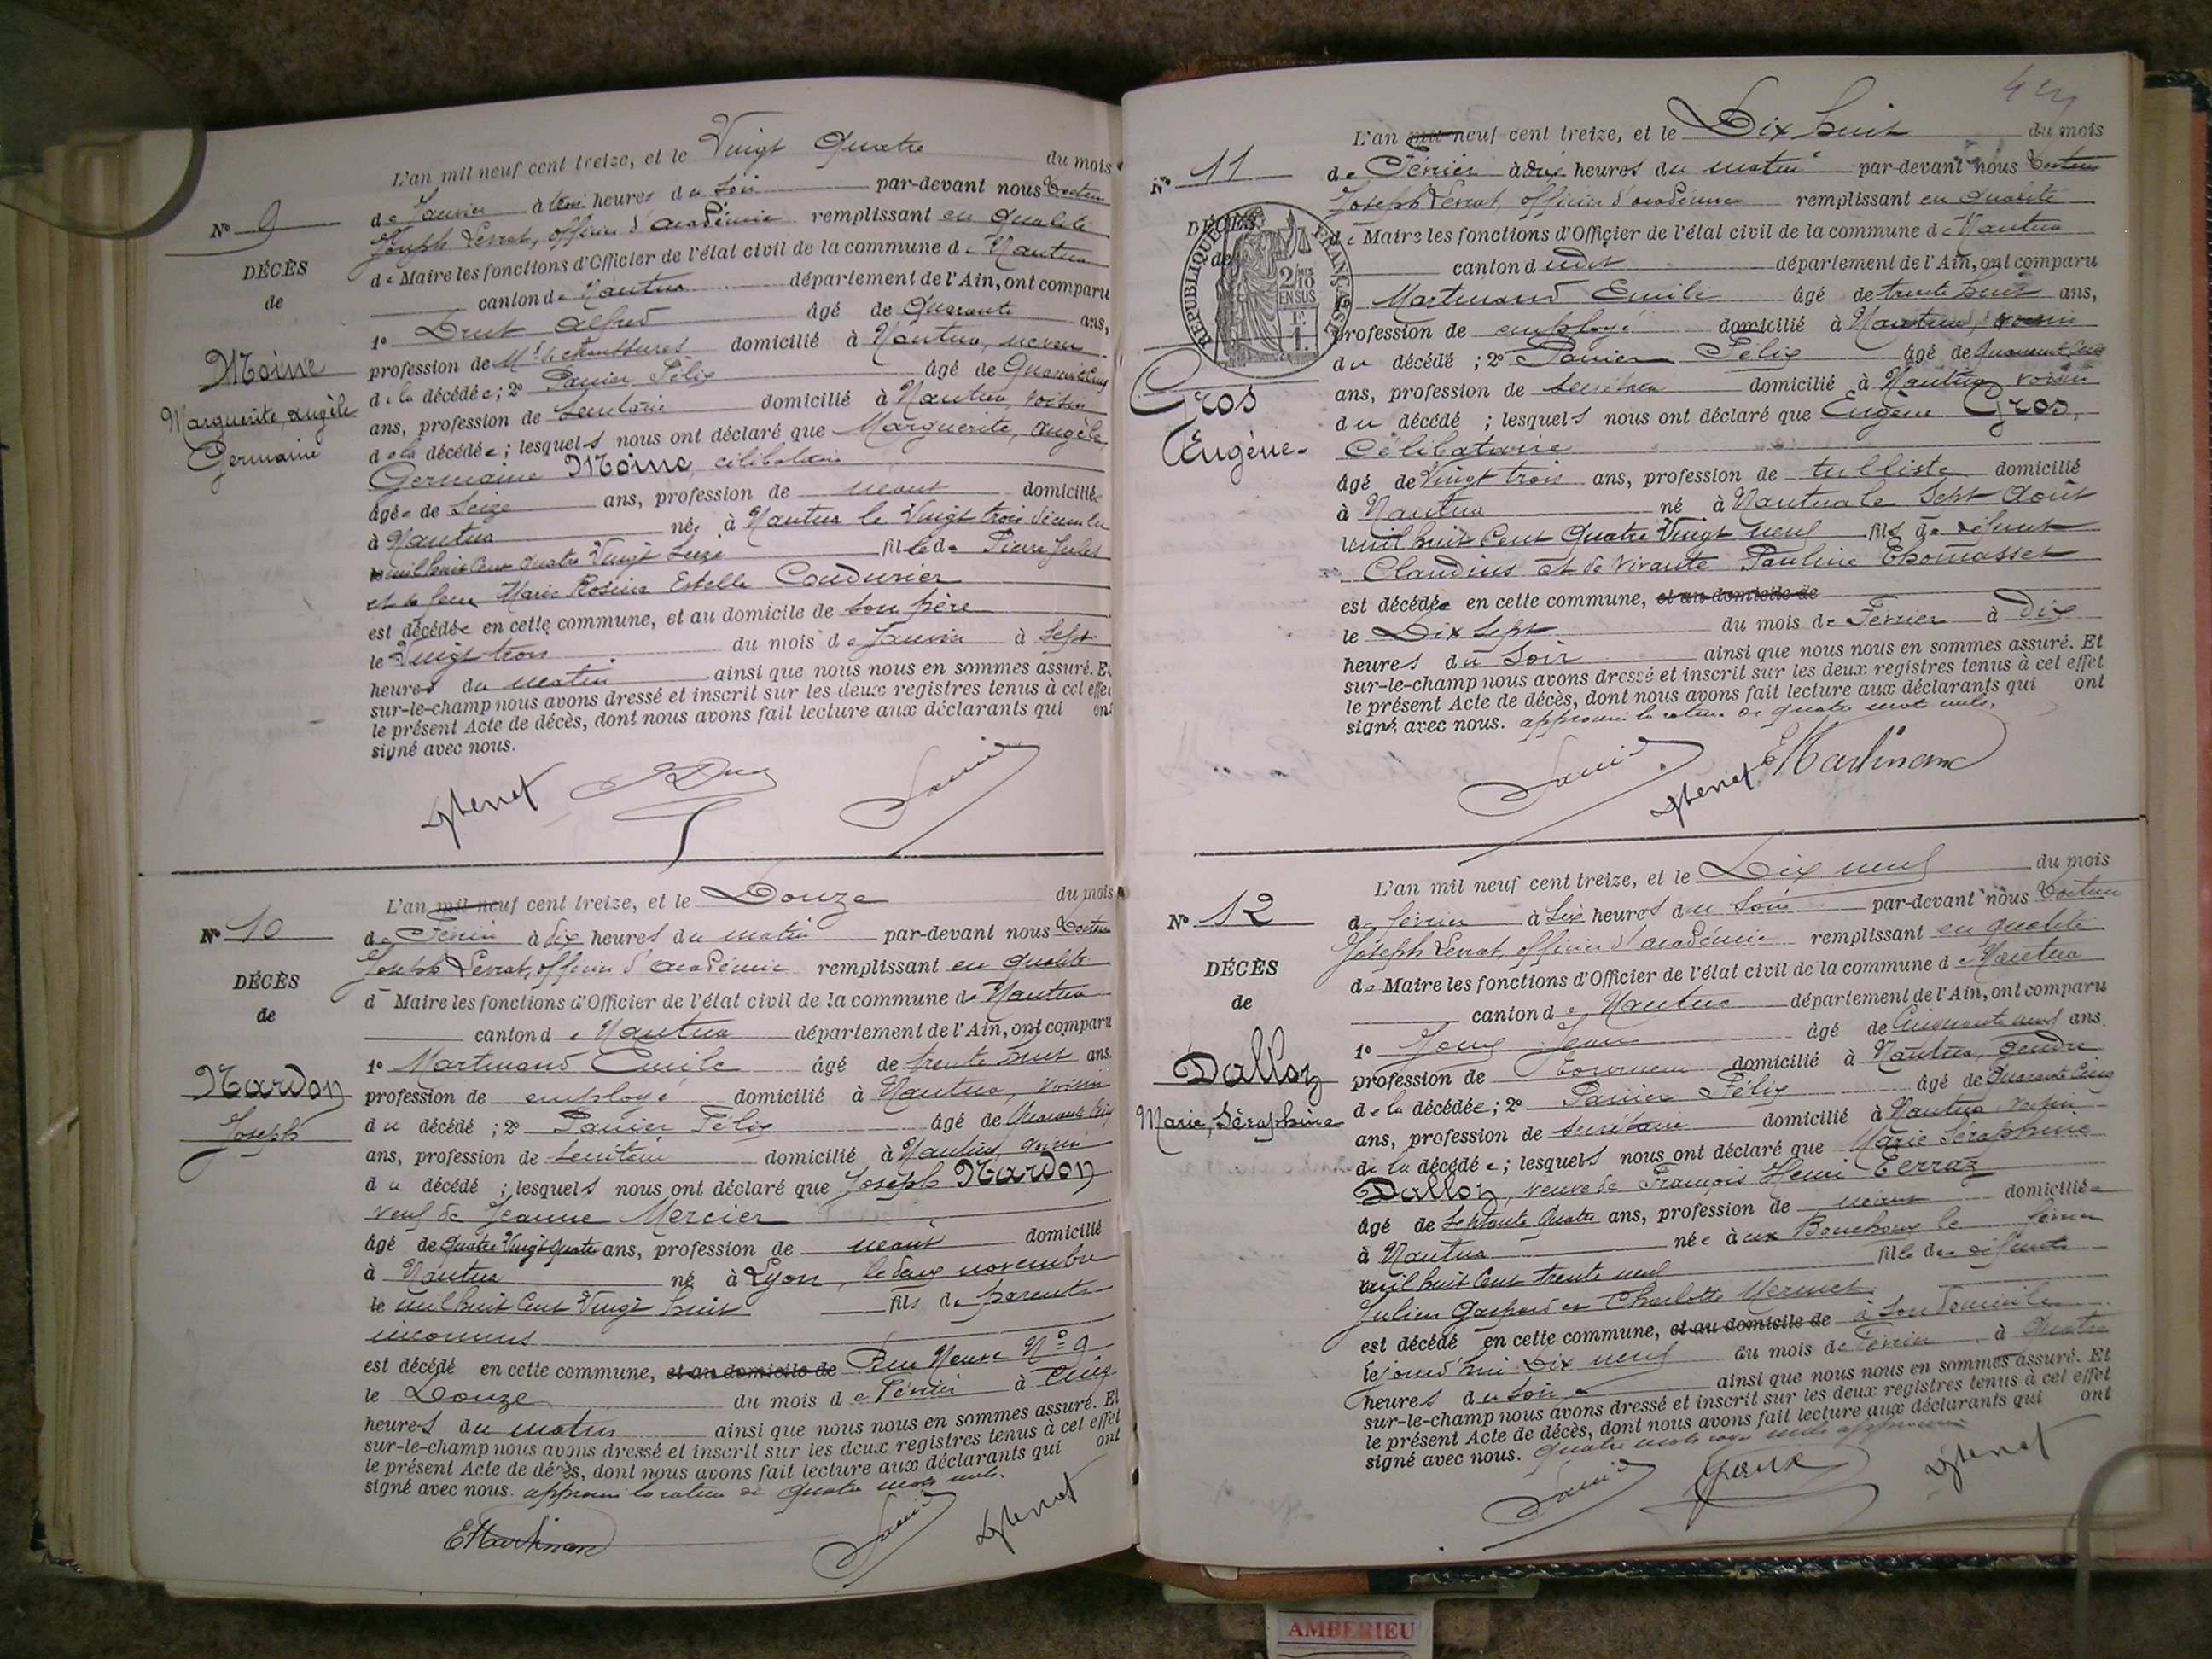 L'an mil neuf cent treize, et le Vingt Quatre du mois
de Janvier à trois heures du Soir par-devant nous Docteur
Joseph Levrat, officier d'académie remplissant en qualité
de Maire les fonctions d'Officier de l'état civil de la commune de Nantua
canton de Nantua département de l'Ain, ont comparu
1° Drut Alfred âgé de Quarante ans,
profession de Md de chaussures domicilié à Nantua, neveu
de la décédée; 2° Panier Félix âgé de Quarante Cinq
ans, profession de Secrétaire domicilié à Nantua, voisin
de la décédée; lesquels nous ont déclaré que Marguerite, Angèle
Germaine Moine, célibataire
âgée de Seize ans, profession de néant domiciliée
à Nantua née à Nantua le Vingt trois décembre
mil huit Cent Quatre Vingt Seize fille de Pierre Jules
et de feue Marie Rosine Estelle Coudurier
est décédée en cette commune, et au domicile de son père
le Vingt trois du mois de Janvier à Sept
heures du matin ainsi que nous nous en sommes assuré. Et
sur-le-champ nous avons dressé et inscrit sur les deux registres tenus à cet effet
le présent Acte de décès, dont nous avons fait lecture aux déclarants qui ont
signé avec nous.
N° 9
DÉCÈS
de
Moine
Marguerite, Angèle
Germaine
L'an mil neuf cent treize, et le Douze du mois
de Février à dix heures du matin par-devant nous Docteur
Joseph Levrat, officier d'académie remplissant en qualité
d Maire les fonctions d'Officier de l'état civil de la commune de Nantua
canton de Nantua département de l'Ain, ont comparu
1° Martinand Emile âgé de trente huit ans.
profession de employé domicilié à Nantua, voisin
du décédé; 2° Panier Félix âgé de Quarante Cinq
ans, profession de Secrétaire domicilié à Nantua, voisin
du décédé; lesquels nous ont déclaré que Joseph Nardon
veuf de Jeanne Mercier
âgé de Quatre Vingt Quatre ans, profession de néant domicilié
à Nantua né à Lyon, le deux novembre
le mil huit Cent Vingt huit fils de parents
inconnus
est décédé en cette commune, et au domicile de Rue Neuve N° 9
le Douze du mois de Février à Cinq
heures du matin ainsi que nous nous en sommes assuré. Et
sur-le-champ nous avons dressé et inscrit sur les deux registres tenus à cet effet
le présent Acte de décès, dont nous avons fait lecture aux déclarants qui ont
signé avec nous. approuvé la rature de quatre mots nuls.
EMartinand
N° 10
DÉCÈS
de
Nardon
Joseph
L'an mil neuf cent treize, et le Dix huit du mois
de Février à dix heures du matin par-devant nous Docteur
Joseph Levrat, officier d'académie remplissant en qualité
de Maire les fonctions d'Officier de l'état civil de la commune de Nantua
canton dudit département de l'Ain, ont comparu
1° Martinand Emile âgé de trente huit ans,
profession de employé domicilié à Nantua, voisin
du décédé; 2° Panier Félix âgé de Quarante Cinq
ans, profession de Secrétaire domicilié à Nantua voisin
du décédé; lesquels nous ont déclaré que Eugène Gros,
Célibataire
âgé de Vingt trois ans, profession de tulliste domicilié
à Nantua né à Nantua le Sept Août
mil huit Cent Quatre Vingt neuf fils de défunt
Claudius et de vivante Pauline Thomasset
est décédé en cette commune, et au domicile de
le Dix Sept du mois de Février à Dix
heures du Soir ainsi que nous nous en sommes assuré. Et
sur-le-champ nous avons dressé et inscrit sur les deux registres tenus à cet effet
le présent Acte de décès, dont nous avons fait lecture aux déclarants qui ont
signé avec nous. approuvé la rature de quatre mots nuls.
EMartinand
N° 11
DÉCÈS
de
RÉPUBLIQUE FRANÇAISE
2/10 EN SUS
1 F.
Gros
Eugène
L'an mil neuf cent treize, et le Dix neuf du mois
de février à Six heures du Soir par-devant nous Docteur
Joseph Levrat, officier d'académie remplissant en qualité
de Maire les fonctions d'Officier de l'état civil de la commune de Nantua
canton de Nantua département de l'Ain, ont comparu
1° Joux Jean âgé de Cinquante neuf ans.
profession de Tourneur domicilié à Nantua, gendre
de la décédée; 2° Panier Félix âgé de Quarante Cinq
ans, profession de Secrétaire domicilié à Nantua voisin
de la décédée; lesquels nous ont déclaré que Marie Séraphine
Dalloz, veuve de François Henri Terraz
âgé de Septante Quatre ans, profession de néant domiciliée
à Nantua née à ux Bouchoux le février
mil huit Cent trente neuf fille des défunts
Julien Gaspard et Charlotte Mermet
est décédé en cette commune, et au domicile de à son domicile
le jourd'hui Dix neuf du mois de Février à Quatre
heures du Soir ainsi que nous nous en sommes assuré. Et
sur-le-champ nous avons dressé et inscrit sur les deux registres tenus à cet effet
le présent Acte de décès, dont nous avons fait lecture aux déclarants qui ont
signé avec nous. Quatre mots rayés nuls approuvé
Joux
N° 12
DÉCÈS
de
Dalloz
Marie, Séraphine
AMBERIEU